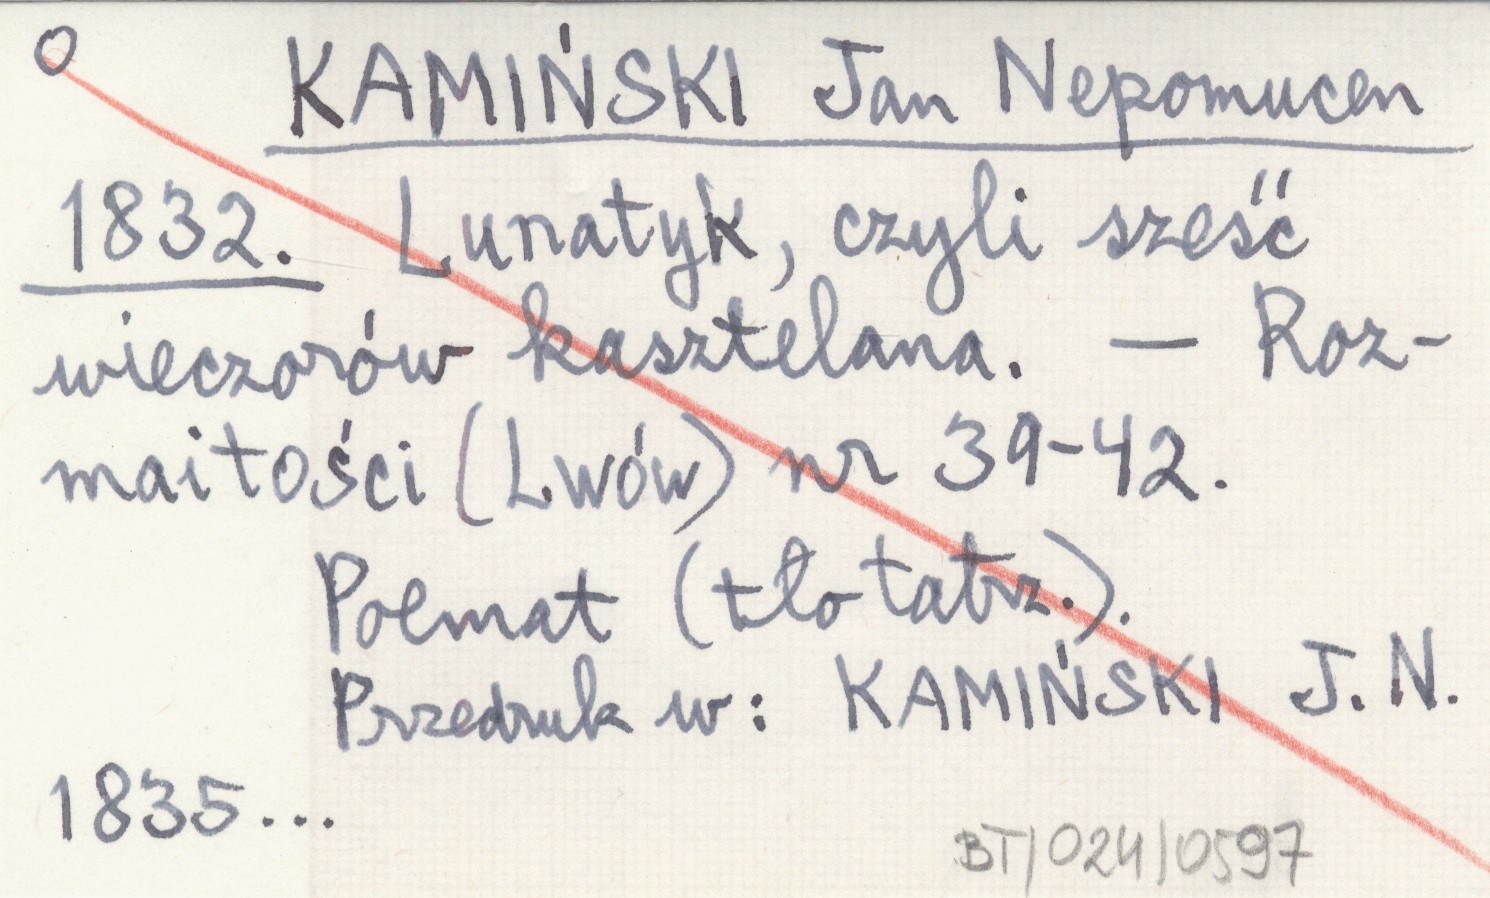 O KAMIŃSKI Jan Nepomucen
1832. Lunatyk, czyli sześć
wieczorów kasztelana. — Roz-
maitości (Lwów) nr 39-42.
Poemat (tło tatrz.).
Przedruk w: KAMIŃSKI J. N.
1835...
BT/024/0597